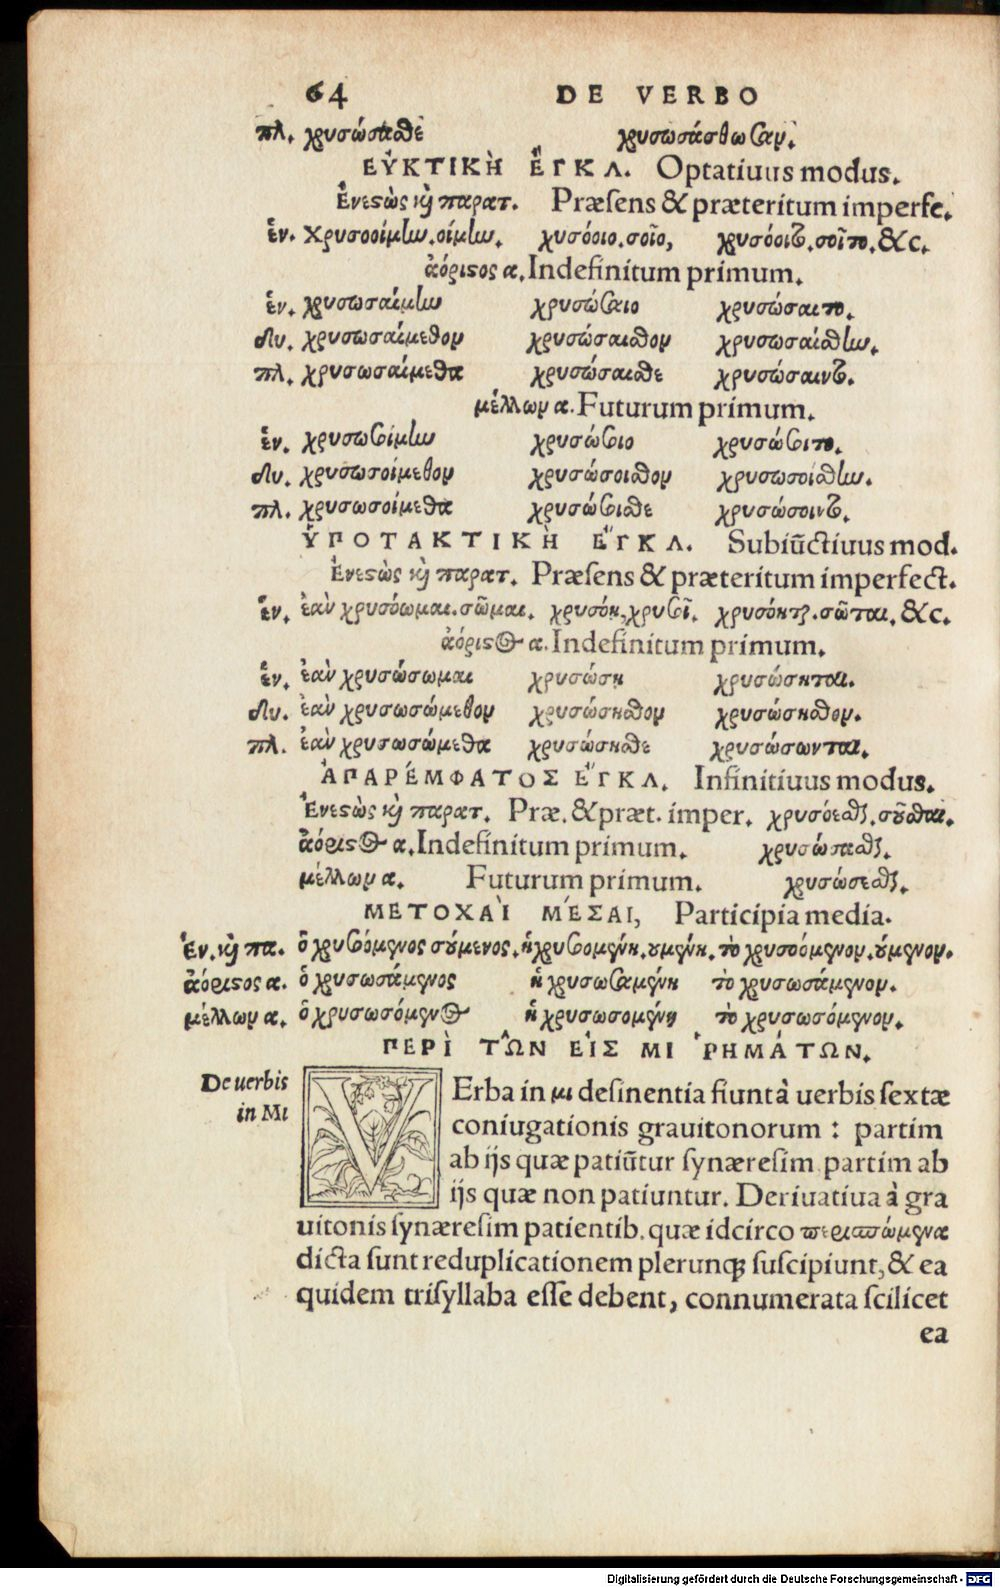 64 DE VERBO
πλ. χρυσώσασθε χρυσωσάσθωσαν.
ΕΥ̓ΚΤΙΚῊ ἜΓΚΛ. Optatiuus modus.
Ἐνεστὼς καὶ παρατ. Præsens & præteritum imperfe.
ἑν. χρυσοοίμην.οίμην. χυσόοιο.σοῖο, χρυσόοιτο.σοῖτο.&c.
ἀόριστος α. Indefinitum primum.
ἑν. χρυσωσαίμην χρυσώσαιο χρυσώσαιτο.
δυ. χρυσωσαίμεθον χρυσώσαισθον χρυσωσαίσθην.
πλ. χρυσωσαίμεθα χρυσώσαισθε χρυσώσαιντο.
μέλλων α. Futurum primum.
ἑν. χρυσωσοίμην χρυσώσοιο χρυσώσοιτο.
δυ. χρυσωσοίμεθον χρυσώσοισθον χρυσωσοίσθην.
πλ. χρυσωσοίμεθα χρυσώσοισθε χρυσώσοιντο.
ὙΠΟΤΑΚΤΙΚῊ ἜΓΚΛ. Subiūctiuus mod.
Ἐνεστὼς καὶ παρατ. Præsens & præteritum imperfect.
ἑν. ἐὰν χρυσόωμαι.σῶμαι. χρυσόῃ,χρυσοῖ. χρυσόηται.σῶται.&c.
ἀόριστος α. Indefinitum primum.
ἑν. ἐὰν χρυσώσωμαι χρυσώσῃ χρυσώσηται.
δυ. ἐὰν χρυσωσώμεθον χρυσώσησθον χρυσώσησθον.
πλ. ἐὰν χρυσωσώμεθα χρυσώσησθε χρυσώσωνται.
ἈΠΑΡΈΜΦΑΤΟΣ ἜΓΚΛ. Infinitiuus modus.
Ἐνεστὼς καὶ παρατ. Præ. & præt. imper. χρυσόεσθαι.σοῦσθαι.
ἀόριστος α. Indefinitum primum. χρυσώσασθαι.
μέλλων α. Futurum primum. χρυσώσεσθαι.
ΜΕΤΟΧΑῚ ΜΈΣΑΙ, Participia media.
Ἐν. καὶ πα. ὁ χρυσοόμενος σούμενος. ἡ χρυσοομένη.ουμένη. τὸ χρυσοόμενον.ούμενον.
ἀόριστος α. ὁ χρυσωσάμενος ἡ χρυσωσαμένη τὸ χρυσωσάμενον.
μέλλων α. ὁ χρυσωσόμενος ἡ χρυσωσομένη τὸ χρυσωσόμενον.
ΠΕΡῚ ΤΩ͂Ν ΕἸΣ ΜΙ ῬΗΜΆΤΩΝ.
De uerbis
in Μι
VErba in μι desinentia fiunt à uerbis sextæ
coniugationis grauitonorum : partim
ab ijs quæ patiūtur synæresim partim ab
ijs quæ non patiuntur. Deriuatiua à gra
uitonis synæresim patientib. quæ idcirco περισπώμενα
dicta sunt reduplicationem plerunq; suscipiunt, & ea
quidem trisyllaba esse debent, connumerata scilicet
ea
Digitalisierung gefördert durch die Deutsche Forschungsgemeinschaft - DFG